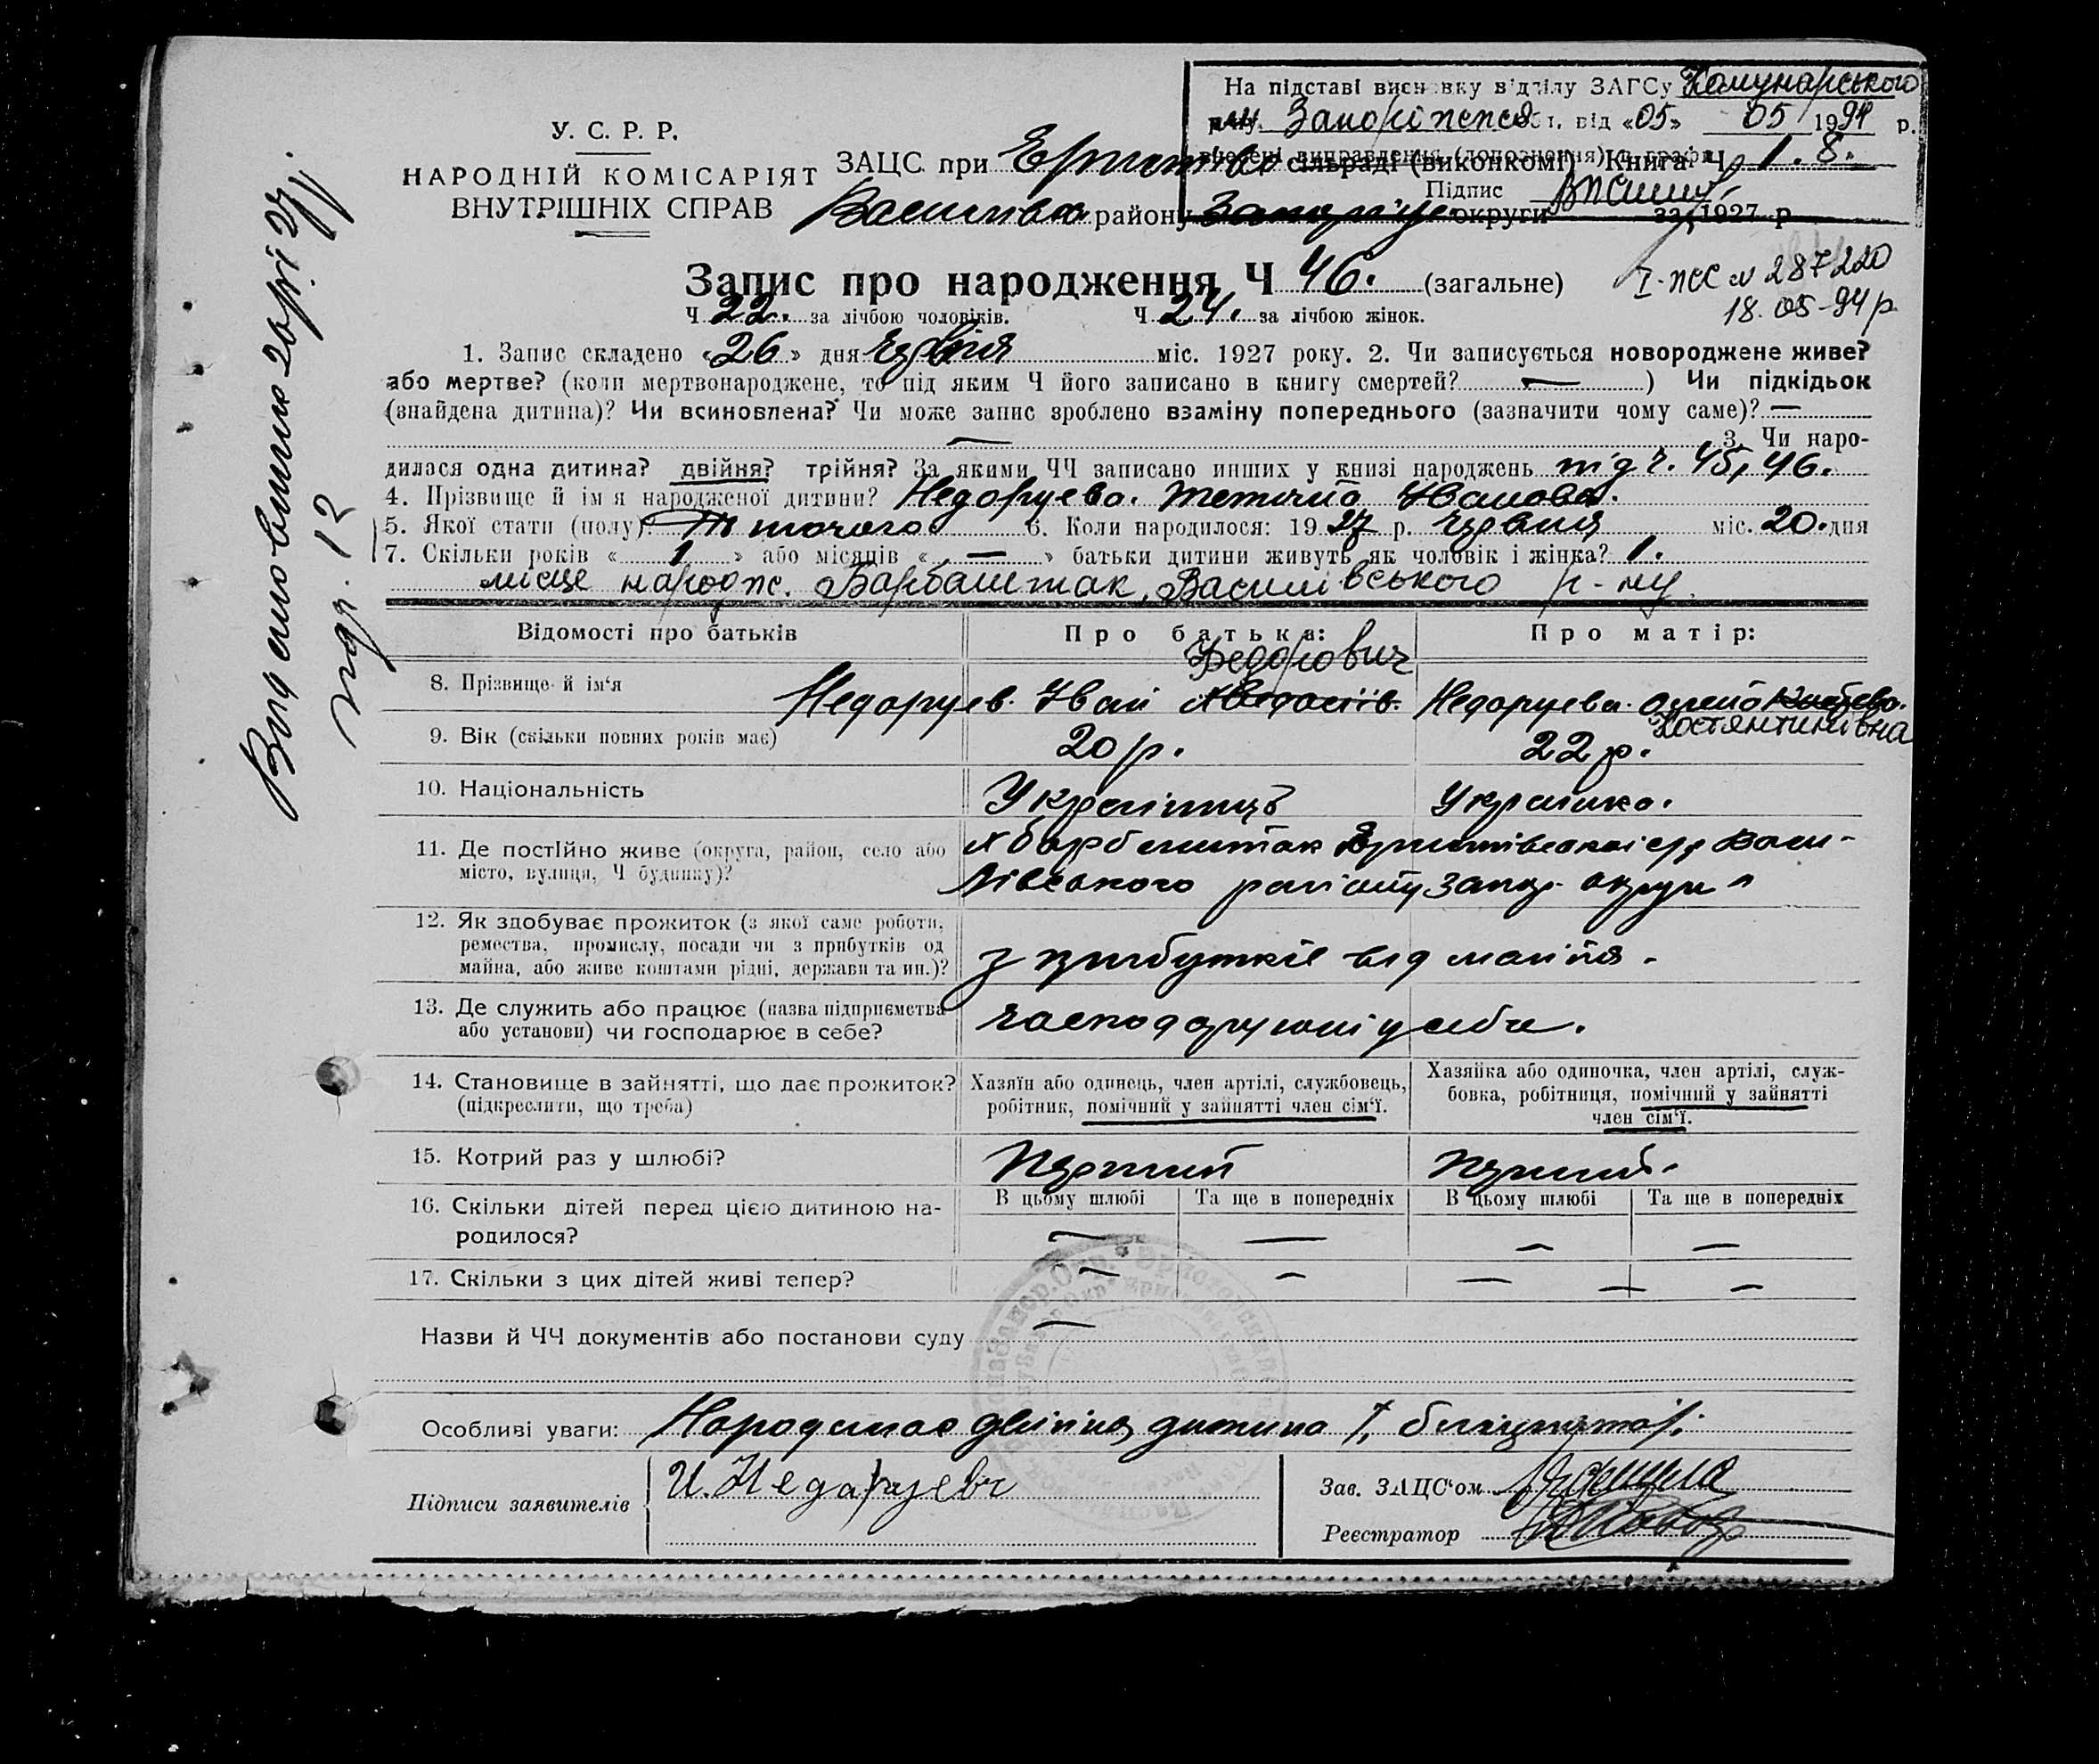 На підставі висновку відділу ЗАГСу Комунарського
р-ну Запоріжжя обл. від «05» 05 1994 р.
внесені виправлення (доповнення) в графи 1. 8.
Підпис
У. С. Р. Р.
НАРОДНІЙ КОМІСАРІЯТ
ВНУТРІШНІХ СПРАВ
ЗАЦС при сільраді (виконкомі) Книга Ч
району округи за 1927 р.
І-ПСС № 287220
18. 05-94 р.
Запис про народження Ч 46. (загальне)
Ч 22. за лічбою чоловіків. Ч 24. за лічбою жінок.
1. Запис складено «26» дня червня міс. 1927 року. 2. Чи записується новороджене живе?
або мертве? (коли мертвонароджене, то під яким Ч його записано в книгу смертей? — ) Чи підкідьок
(знайдена дитина)? Чи всиновлена? Чи може запис зроблено взаміну попереднього (зазначити чому саме)? —
— 3. Чи наро-
дилася одна дитина? двійня? трійня? За якими ЧЧ записано инших у книзі народжень під ч. 45, 46.
4. Прізвище й ім'я народженої дитини? Недоруева. Тетяна Іванова.
5. Якої стати (полу)? жіночого 6. Коли народилося: 1927 р. червня міс. 20. дня
7. Скільки років « 1 » або місяців « — » батьки дитини живуть як чоловік і жінка? 1.
місце народж. Барбаштак, Василівського р-ну.
Відомості про батьків
Про батька:
Про матір:
8. Прізвище й ім'я
Недоруев. Іван
Федорович
Недоруева.
Костянтинівна
9. Вік (скільки повних років має)
20 р.
22 р.
10. Національність
Українець
Українка.
11. Де постійно живе (округа, район, село або
місто, вулиця, Ч будинку)?
х Барбаштак с/р Васи-
лівського району Запор. округи
12. Як здобуває прожиток (з якої саме роботи,
ремества, промислу, посади чи з прибутків од
майна, або живе коштами рідні, держави та ин.)?
з прибутків від майна.
13. Де служить або працює (назва підприємства
або установи) чи господарює в себе?
14. Становище в зайнятті, що дає прожиток?
(підкреслити, що треба)
Хазяїн або одинець, член артілі, службовець,
робітник, помічний у зайнятті член сім'ї.
Хазяйка або одиночка, член артілі, служ-
бовка, робітниця, помічний у зайнятті
член сім'ї.
15. Котрий раз у шлюбі?
Перший
Перший.
16. Скільки дітей перед цією дитиною на-
родилося?
В цьому шлюбі
Та ще в попередніх
В цьому шлюбі
Та ще в попередніх
— — — —
17. Скільки з цих дітей живі тепер?
— — — —
Назви й ЧЧ документів або постанови суду —
Особливі уваги: двійня, дитина
Підписи заявителів
И. Недоруевъ
Зав. ЗАЦС'ом
Реєстратор